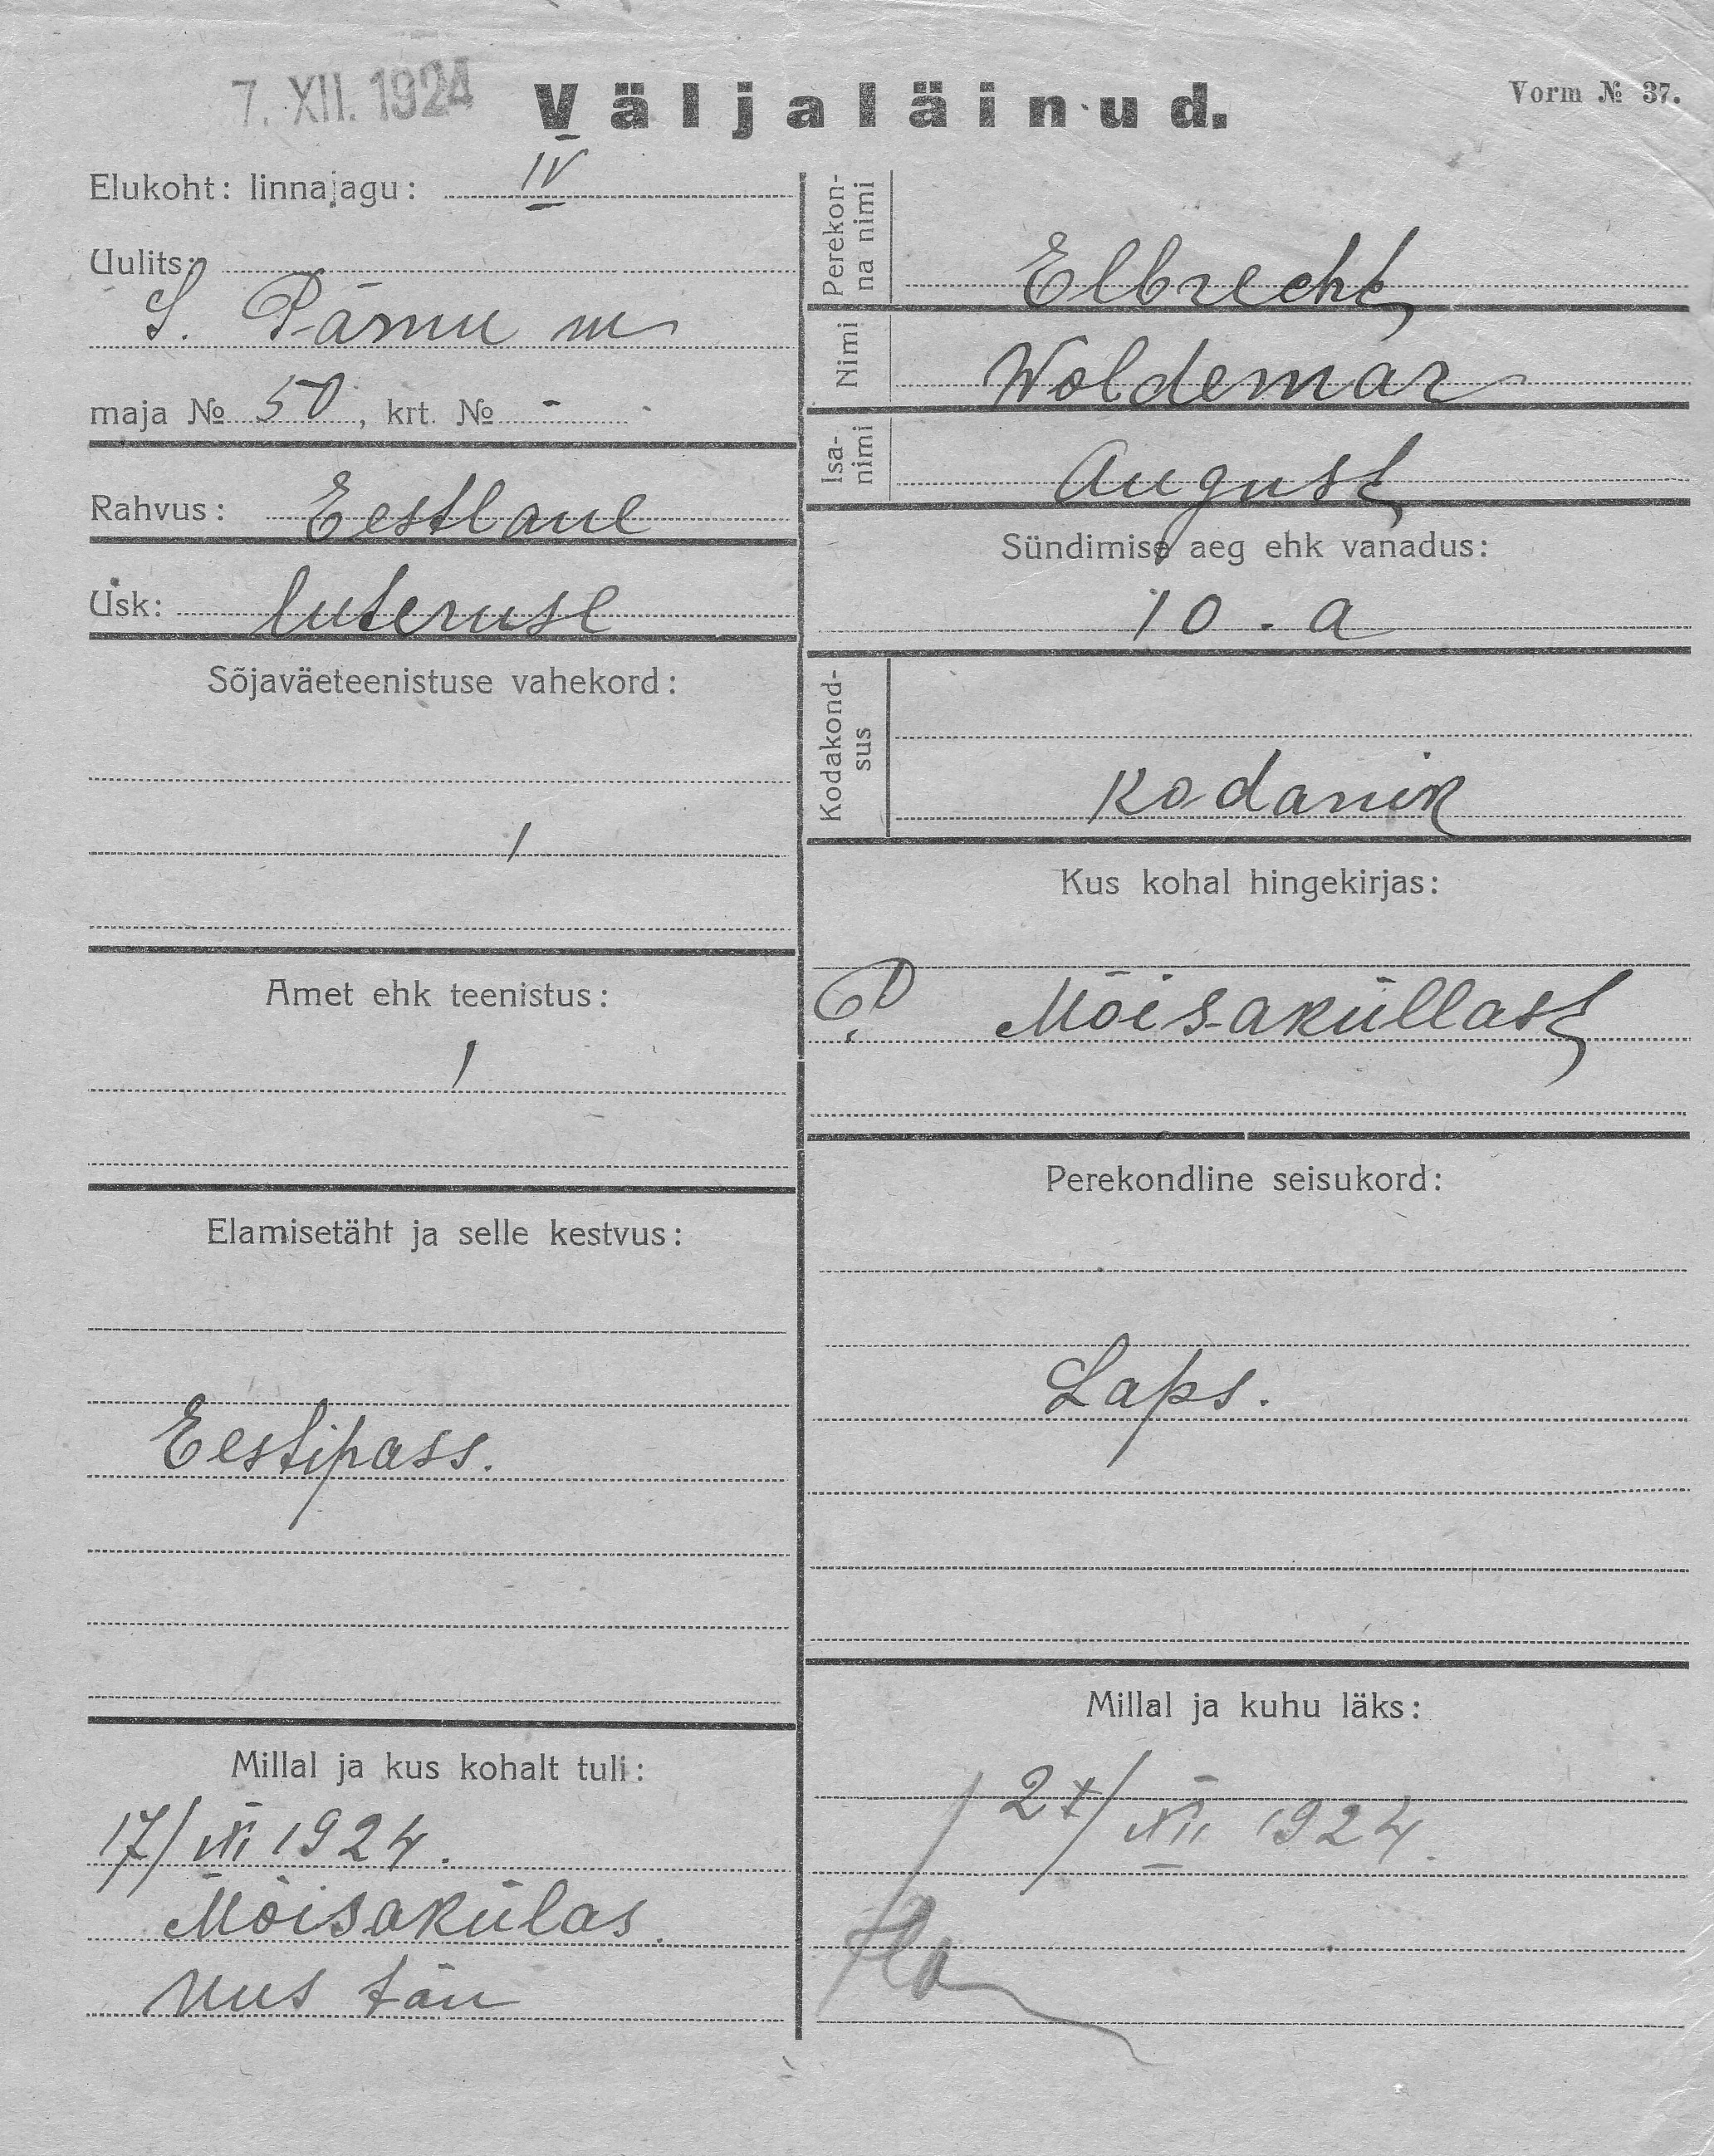 7. XII. 1924
Väljaläinud.
Vorm № 37.
Elukoht: linnajagu: IV
Uulits:
S. Pärnu m
maja № 50, krt. № -
Rahvus: Eestlane
Usk: luteruse
Sõjaväeteenistuse vahekord:
/
Amet ehk teenistus:
/
Elamisetäht ja selle kestvus:
Eestipass.
Millal ja kus kohalt tuli:
17/XI 1924.
Mõisakülas.
uus tän
Perekon-
na nimi
Elbrecht
Nimi
Woldemar
Isa-
nimi
August
Sündimise aeg ehk vanadus:
10. a
Kodakond-
sus
Kodanik
Kus kohal hingekirjas:
Mõisaküllast
Perekondline seisukord:
Laps.
Millal ja kuhu läks:
XII 1924.